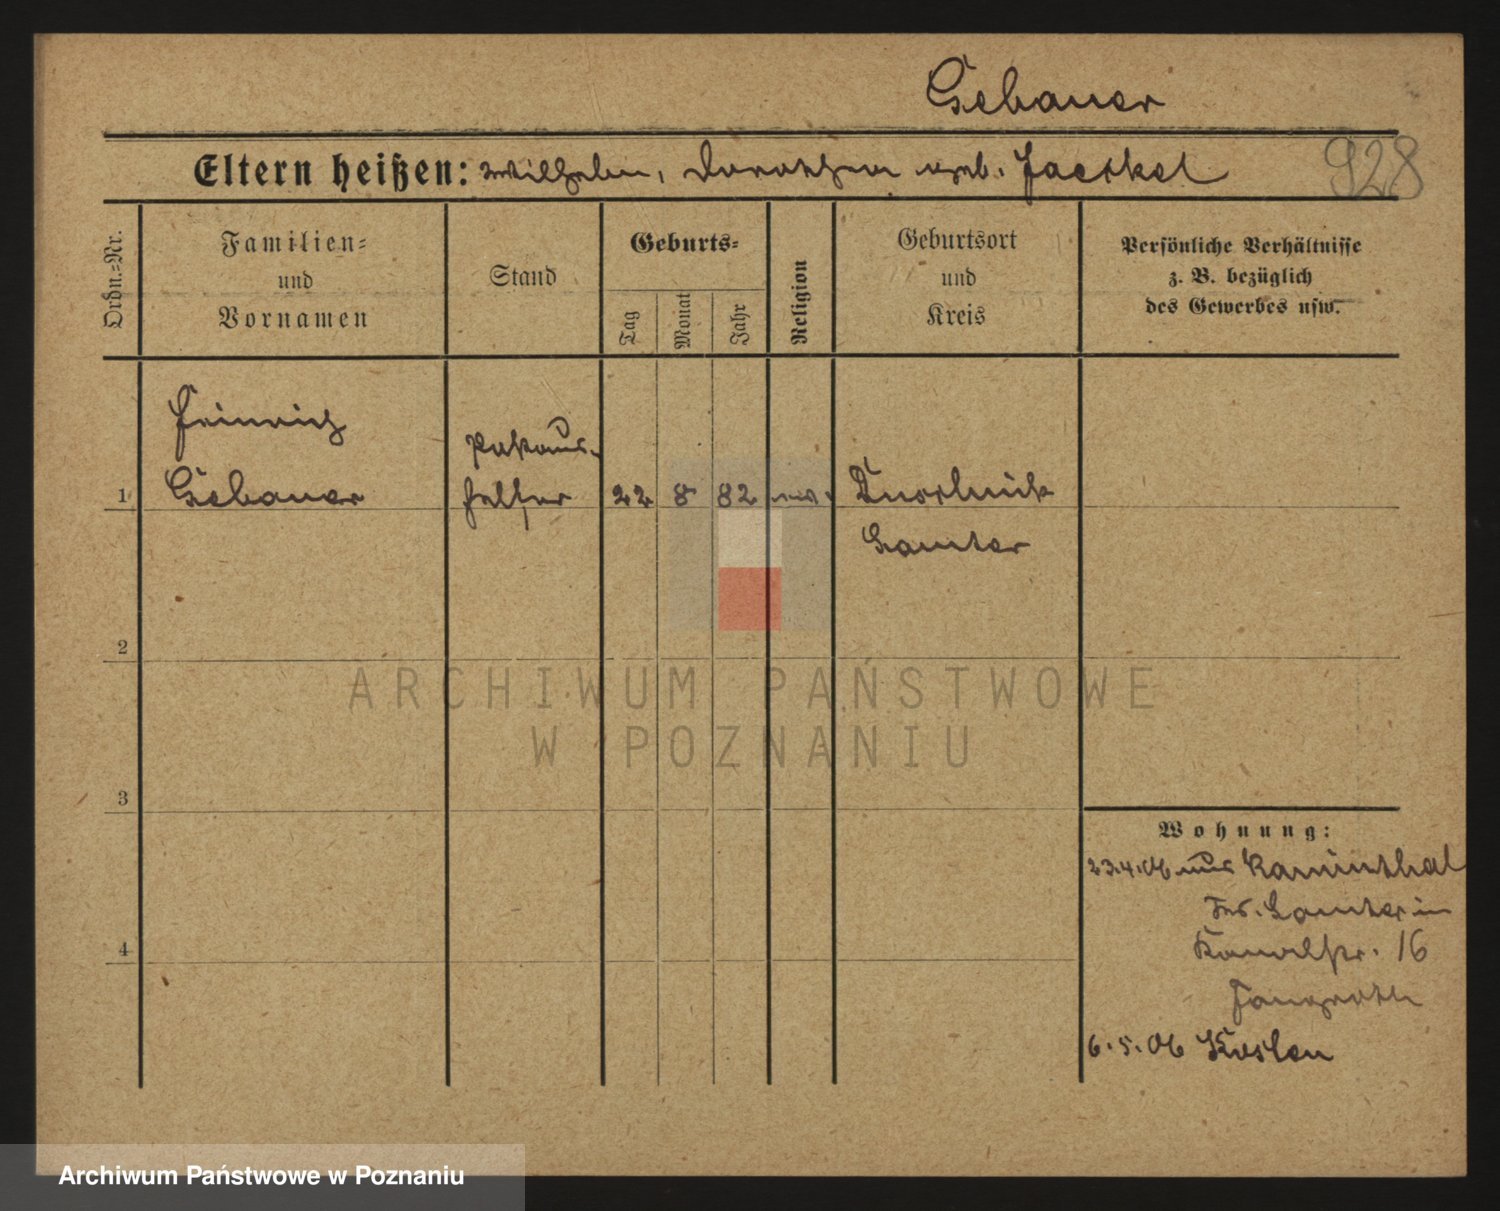 Gebauer
Eltern heißen: Wilhelm, Dorothea geb. Jaeckel 928
Ordn.=Nr.
Familien=
und
Vornamen
Stand
Geburts=
Tag
Monat
Jahr
Religion
Geburtsort
und
Kreis
Persönliche Verhältnisse
z. B. bezüglich
des Gewerbes usw.
Heinrich
Gebauer
1
22 8 82 ev.
Samter
2
3
4
Wohnung:
23.4.06 aus
Samter in
Kanalstr. 16
6.5.06 Kosten
ARCHIWUM PAŃSTWOWE
W POZNANIU
Archiwum Państwowe w Poznaniu